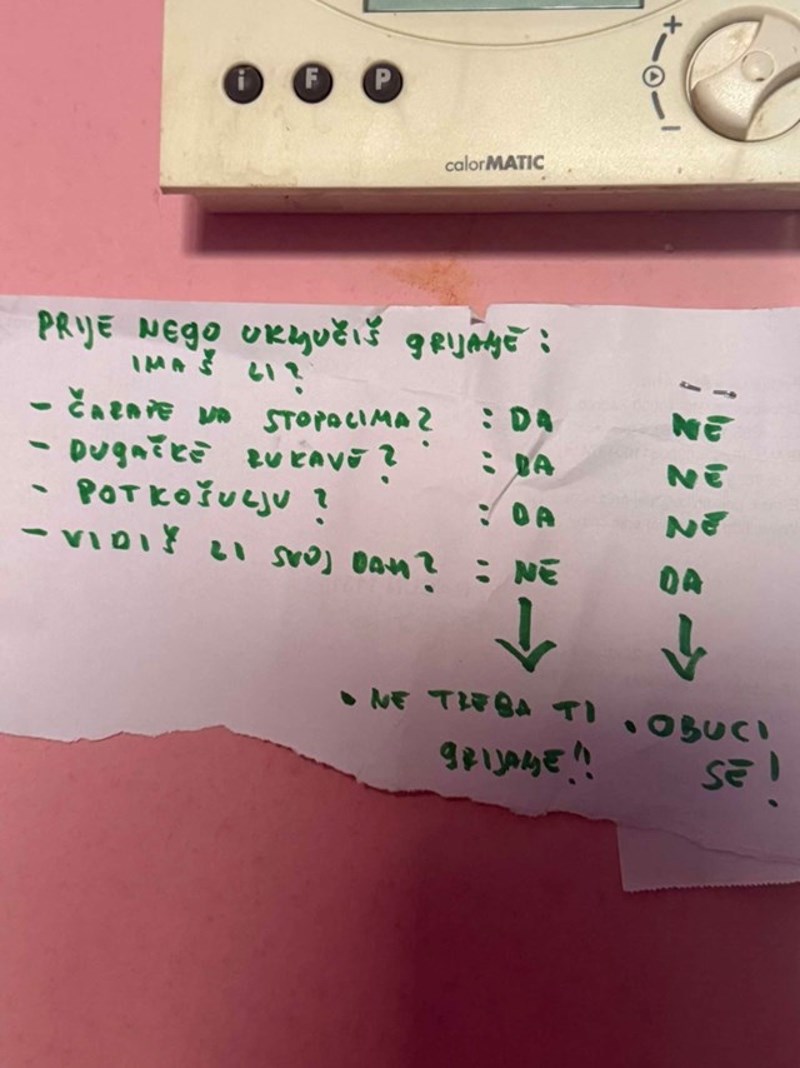 i F P
+
−
calorMATIC
PRIJE NEGO UKLJUČIŠ GRIJANJE:
IMAŠ LI?
- ČARAPE NA STOPALIMA? : DA NE
- DUGAČKE RUKAVE? : DA NE
- POTKOŠULJU? : DA NE
- VIDIŠ LI SVOJ DAH? : NE DA
• NE TREBA TI • OBUCI
GRIJANJE!! SE!